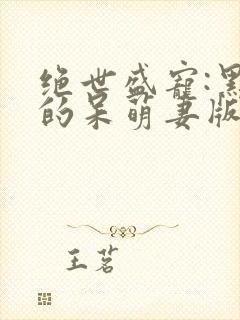 绝世盛宠:黑
的呆萌妻版
王茗